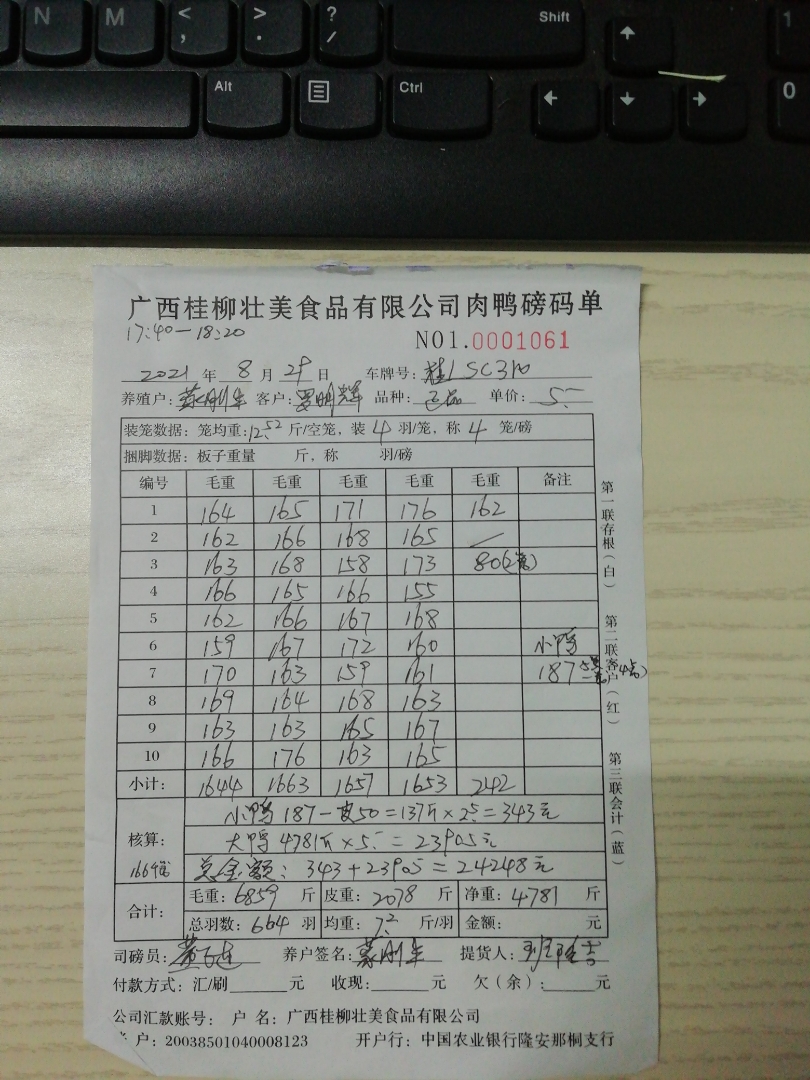 N M < , > . ? / Shift 1
Alt Ctrl 0
广西桂柳壮美食品有限公司肉鸭磅码单
17:40—18:20
NO1.0001061
2021 年 8 月 29 日 车牌号: 桂LSC310
养殖户: 客户: 品种: 单价: 5.-
装笼数据: 笼均重:12.52 斤/空笼, 装 4 羽/笼, 称 4 笼/磅
捆脚数据: 板子重量 斤, 称 羽/磅
编号 毛重 毛重 毛重 毛重 毛重 备注
1 164 165 171 176 162
2 162 166 168 165
3 163 168 158 173 80
4 166 165 166 155
5 162 166 167 168
6 159 167 172 160 小鸭
7 170 163 159 161 187
8 169 164 168 163
9 163 163 165 167
10 166 176 163 165
小计: 1644 1663 1657 1653 242
小鸭 187-皮50=137斤×2.5=343元
核算: 大鸭 4781斤×5.-=23905元
总金额: 343+23905=24248元
合计: 毛重: 6859 斤 皮重: 2078 斤 净重: 4781 斤
总羽数: 664 羽 均重: 7.2 斤/羽 金额: 元
司磅员: 养户签名: 提货人:
付款方式: 汇/刷 元 收现: 元 欠(余): 元
公司汇款账号: 户 名: 广西桂柳壮美食品有限公司
户: 20038501040008123 开户行: 中国农业银行隆安那桐支行
第一联存根(白)
第二联客户(红)
第三联会计(蓝)